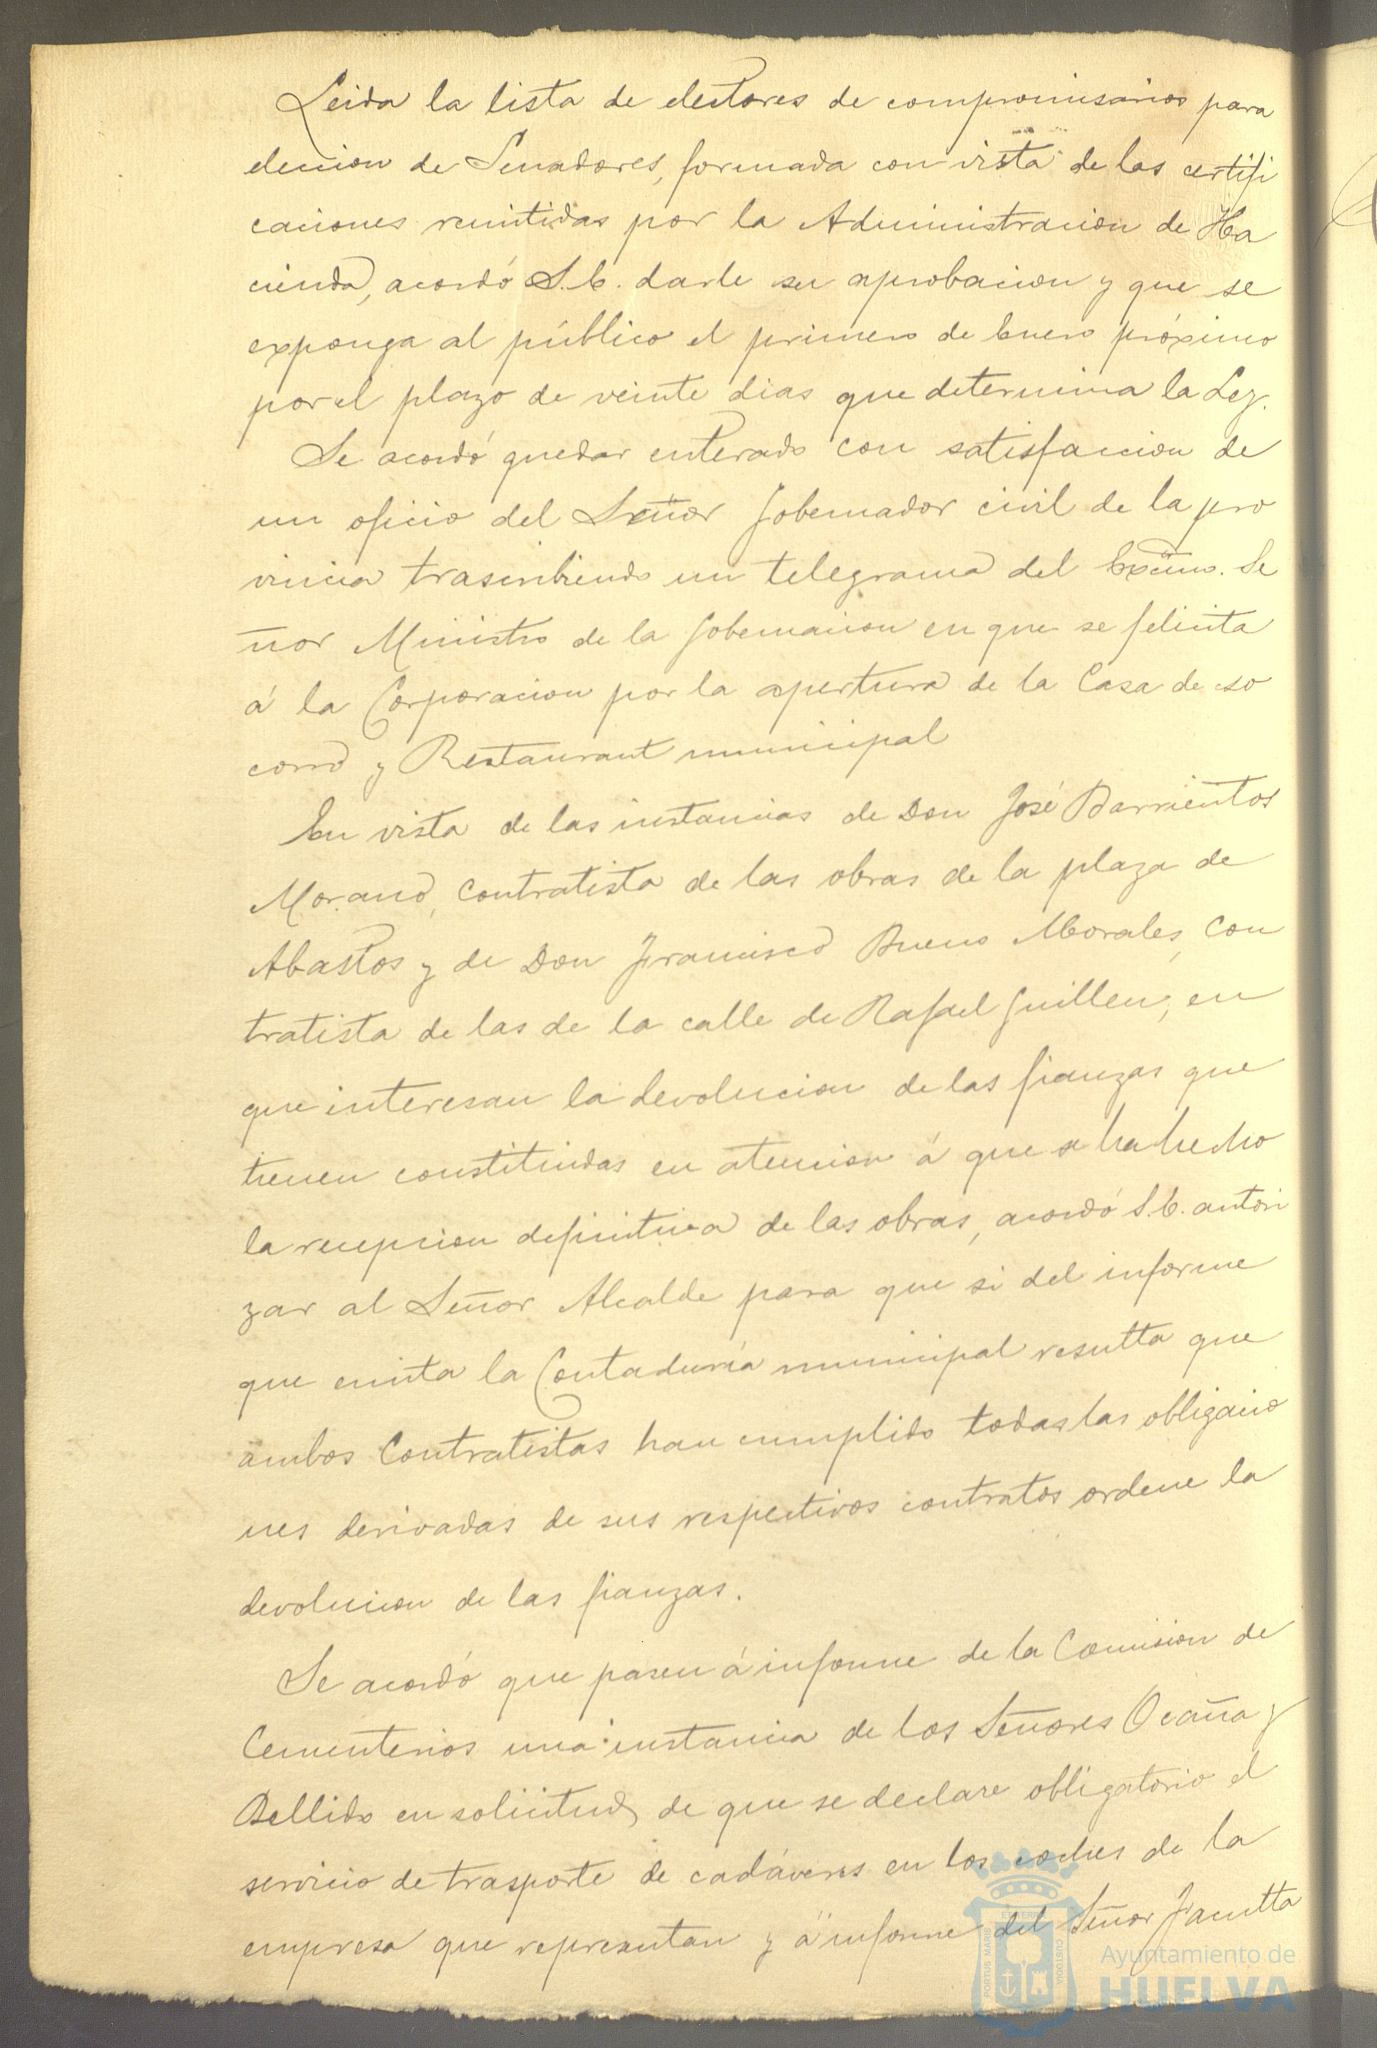 Leida la lista de electores de compromisarios para
eleccion de Senadores, formada con vista de las certifi
caciones remitidas por la Administracion de Ha
cienda, acordó S.C. darle su aprobacion y que se
exponga al público el primero de Enero próximo
por el plazo de veinte dias que determina la Ley.
Se acordó quedar enterado con satisfaccion de
un oficio del Señor Gobernador civil de la pro
vincia trascribiendo un telegrama del Excmo. Se
ñor Ministro de la Gobernacion en que se felicita
á la Corporacion por la apertura de la Casa de so
corro y Restaurant municipal
En vista de las instancias de Don José Barrientos
Morano, contratista de las obras de la plaza de
Abastos y de Don Francisco Bueno Morales, con
tratista de las de la calle de Rafael Guillen, en
que interesan la devolucion de las fianzas que
tienen constituidas en atencion á que se ha hecho
la recepcion definitiva de las obras, acordó S.C. autori
zar al Señor Alcalde para que si del informe
que emita la Contaduría municipal resulta que
ambos Contratistas han cumplido todas las obligacio
nes derivadas de sus respectivos contratos ordene la
devolucion de las fianzas.
Se acordó que pasen á informe de la Comision de
Cementerios una instancia de los Señores Ocaña y
Bellido en solicitud de que se declare obligatorio el
servicio de trasporte de cadáveres en los coches de la
empresa que representan y á informe del Señor Faculta
Ayuntamiento de
HUELVA